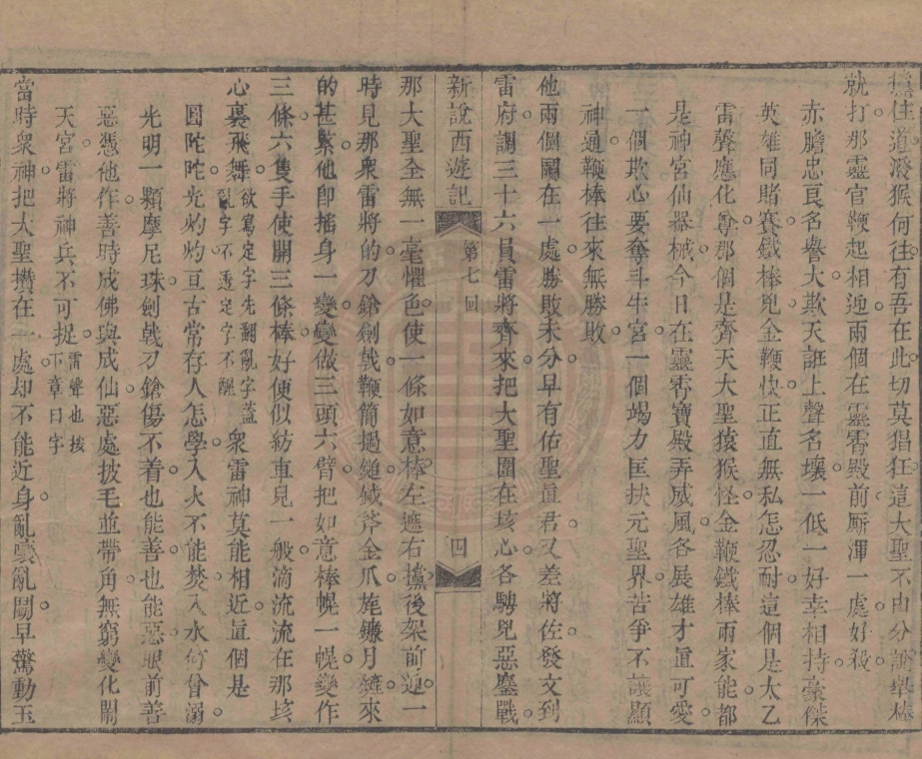 擋住道潑猴何往有吾在此切莫猖狂這大聖不由分說舉棒
就打那靈官鞭起相迎兩個在靈霄殿前厮渾一處好殺
赤膽忠良名譽大欺天誑上聲名壞一低一好幸相持豪傑
英雄同賭賽鐵棒兇金鞭快正直無私怎忍耐這個是太乙
雷聲應化尊那個是齊天大聖猿猴怪金鞭鐵棒兩家能都
是神宮仙器械今日在靈霄寶殿弄威風各展雄才眞可愛
一個欺心要奪斗牛宮一個竭力匡扶元聖界苦爭不讓顯
神通鞭棒往來無勝敗
他兩個鬬在一處勝敗未分早有佑聖眞君又差將佐發文到
雷府調三十六員雷將齊來把大聖圍在垓心各騁兇惡鏖戰
新說西遊記 第七回 四
那大聖全無一毫懼色使一條如意棒左遮右攩後架前迎一
時見那衆雷將的刀鎗劍戟鞭簡撾鎚鉞斧金爪旄鐮月鏟來
的甚緊他卽搖身一變變做三頭六臂把如意棒幌一幌變作
三條六隻手使開三條棒好便似紡車兒一般滴流流在那垓
心裏飛舞欲寫定字先翻亂字蓋亂字不透定字不醒衆雷神莫能相近眞個是
圓陀陀光灼灼亘古常存人怎學入火不能焚入水何曾溺
光明一顆摩尼珠劍戟刀鎗傷不着也能善也能惡眼前善
惡憑他作善時成佛與成仙惡處披毛並帶角無窮變化鬧
天宮雷將神兵不可捉雷聲也接下章曰字
當時衆神把大聖攢在一處却不能近身亂嚷亂鬬早驚動玉